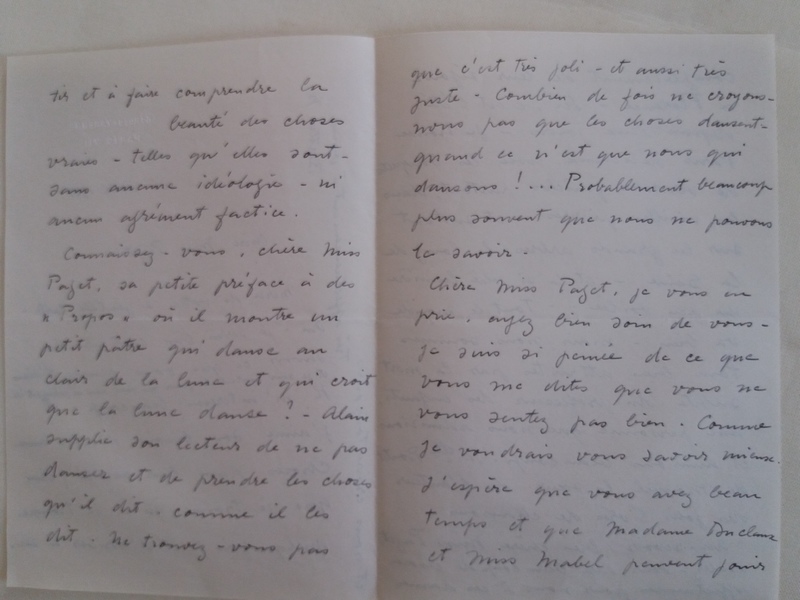 tir et à faire comprendre la
beauté des choses
vraies - telles qu'elles sont -
sans aucune idéologie - ni
aucun agrément factice.
Connaissez-vous, chère Miss
Paget, sa petite préface à des
"Propos" où il montre un
petit pâtre qui danse au
clair de la lune et qui croit
que la lune danse ? - Alain
supplie son lecteur de ne pas
danser et de prendre les choses
qu'il dit. comme il les
dit. Ne trouvez-vous pas
que c'est très joli - et aussi très
juste - Combien de fois ne croyons-
nous pas que les choses dansent -
quand ce n'est que nous qui
dansons !... Probablement beaucoup
plus souvent que nous ne pouvons
le savoir.
Chère Miss Paget, je vous en
prie, ayez bien soin de vous -
je suis si peinée de ce que
vous me dites que vous ne
vous sentez pas bien. Comme
je voudrais vous savoir mieux.
J'espère que vous avez beau
temps et que Madame Duclaux
et Miss Mabel peuvent jouir